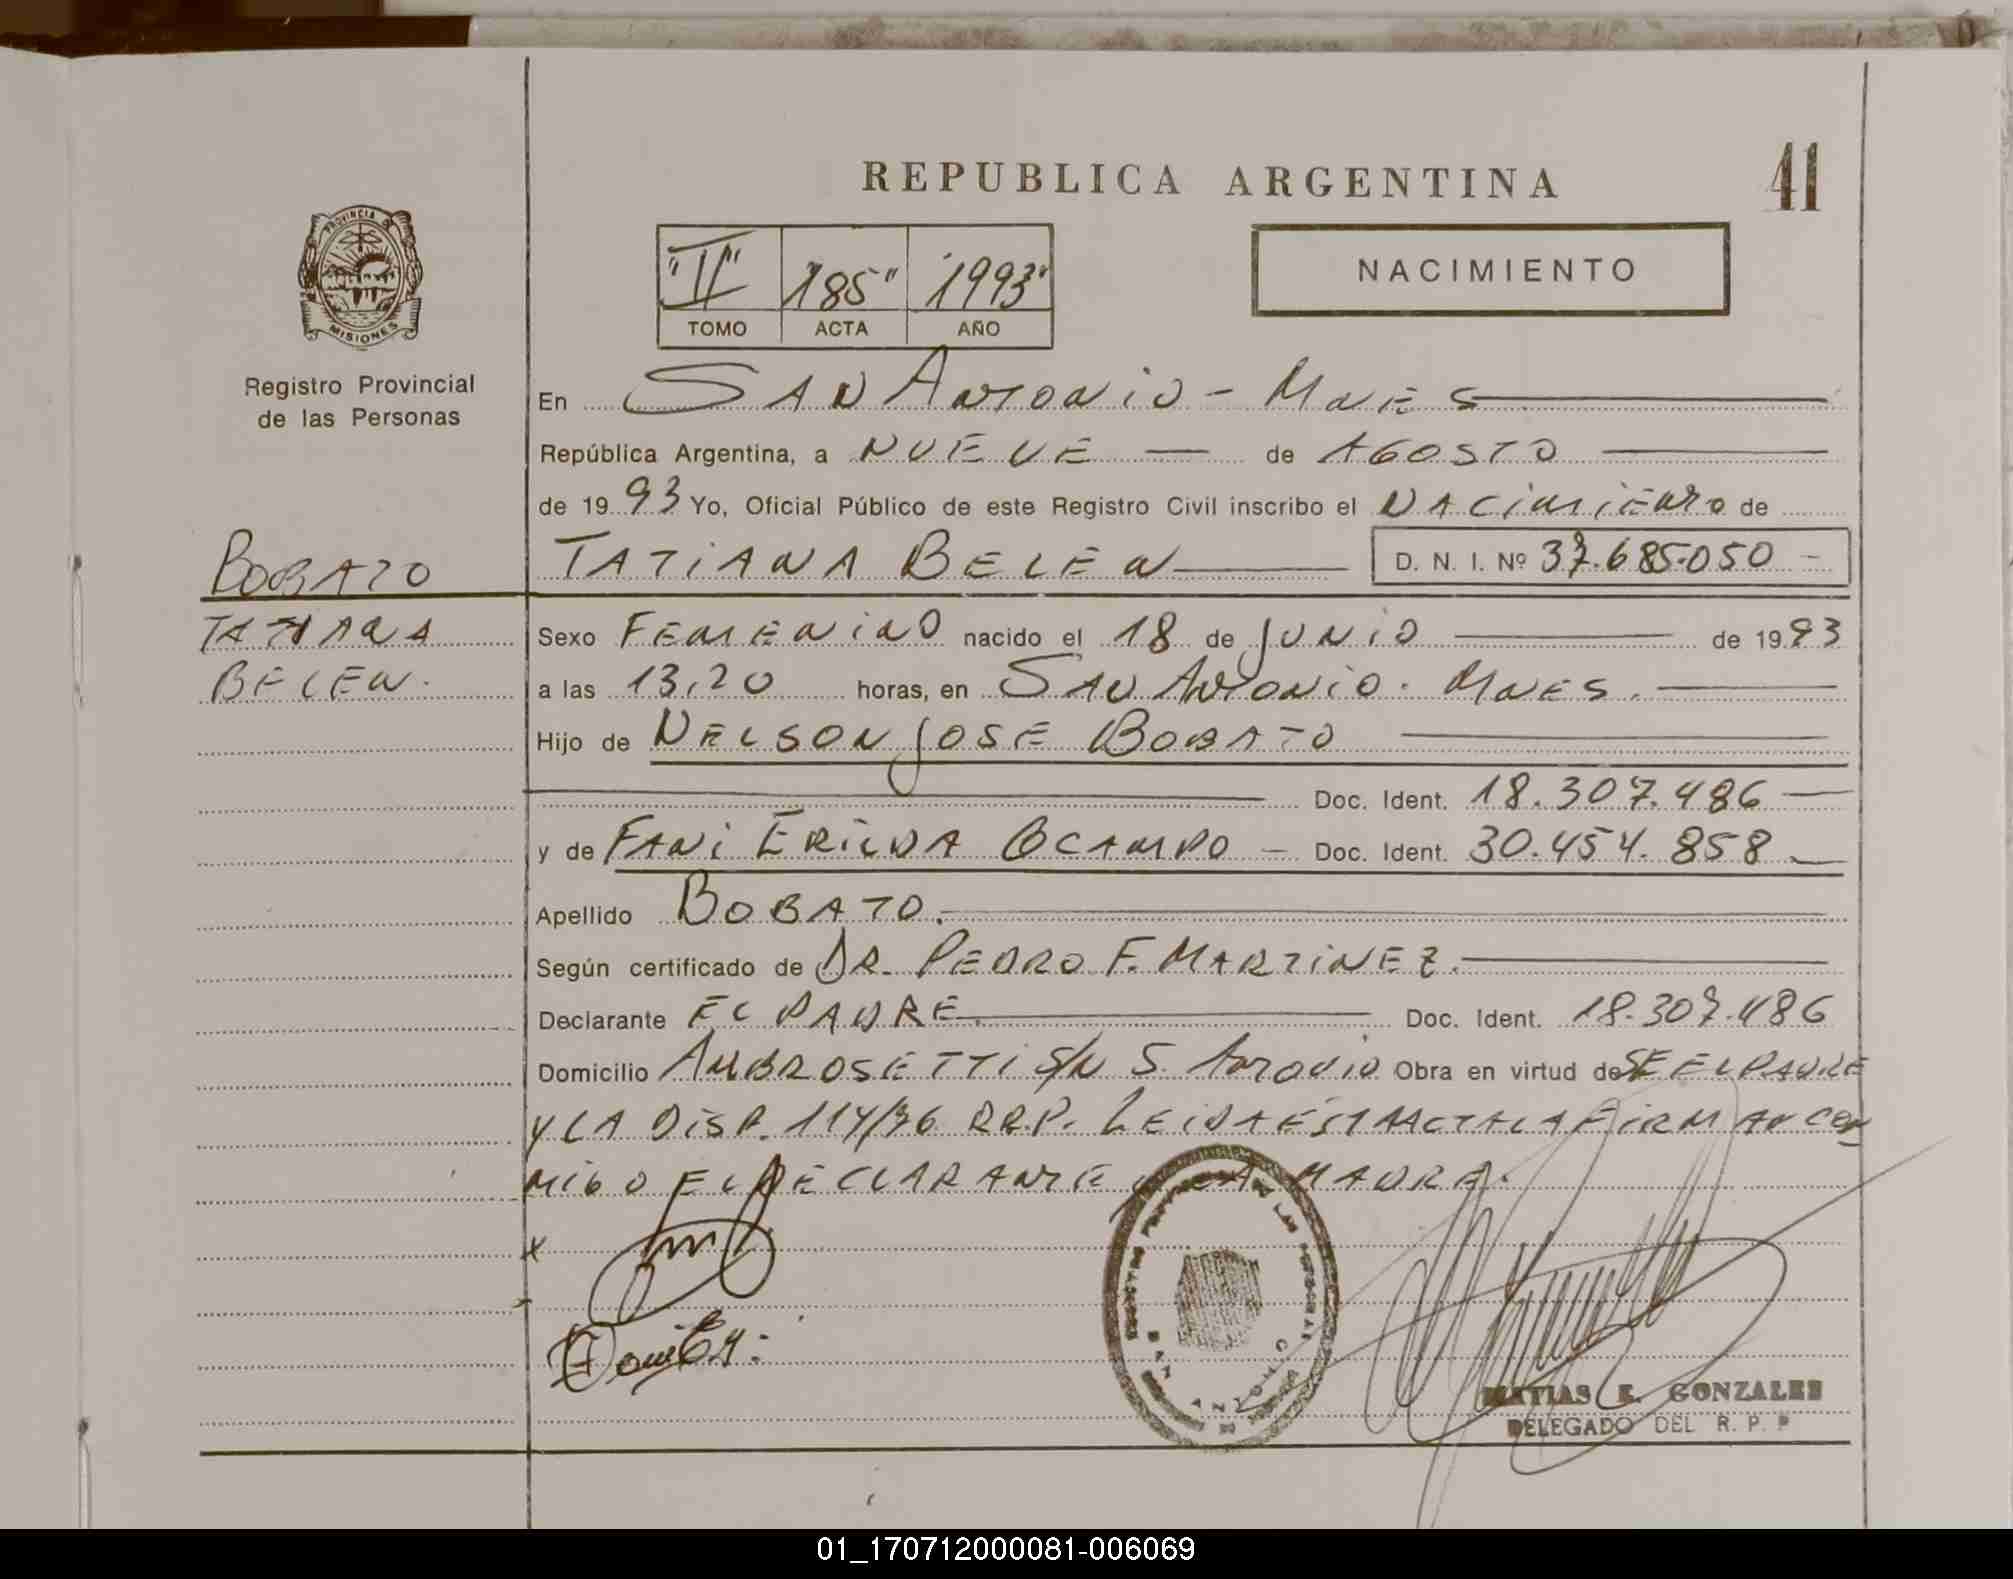 REPUBLICA ARGENTINA
41
PROVINCIA DE
MISIONES
Registro Provincial
de las Personas
"II" "185" "1993"
TOMO ACTA AÑO
NACIMIENTO
En SAN ANTONIO - MNES
República Argentina, a NUEVE de AGOSTO
de 1993 Yo, Oficial Público de este Registro Civil inscribo el NACIMIENTO de
BOBATO
TATIANA BELEN D. N. I. Nº 37.685.050
TATIANA
BELEN.
Sexo FEMENINO nacido el 18 de JUNIO de 1993
a las 13,20 horas, en SAN ANTONIO. MNES.
Hijo de NELSON JOSE BOBATO
Doc. Ident. 18.307.486
y de FANI ERILDA OCAMPO Doc. Ident. 30.454.858
Apellido BOBATO.
Según certificado de DR. PEDRO F. MARTINEZ.
Declarante EL PADRE. Doc. Ident. 18.307.486
Domicilio AMBROSETTI S/N S. ANTONIO Obra en virtud de SE EL PADRE
Y LA DISP. 114/86 R.R.P. LEIDA ESTA ACTA LA FIRMAN CON
MIGO EL DECLARANTE Y LA MADRE.
x
MATIAS E. GONZALEZ
DELEGADO DEL R. P. P
01_170712000081-006069